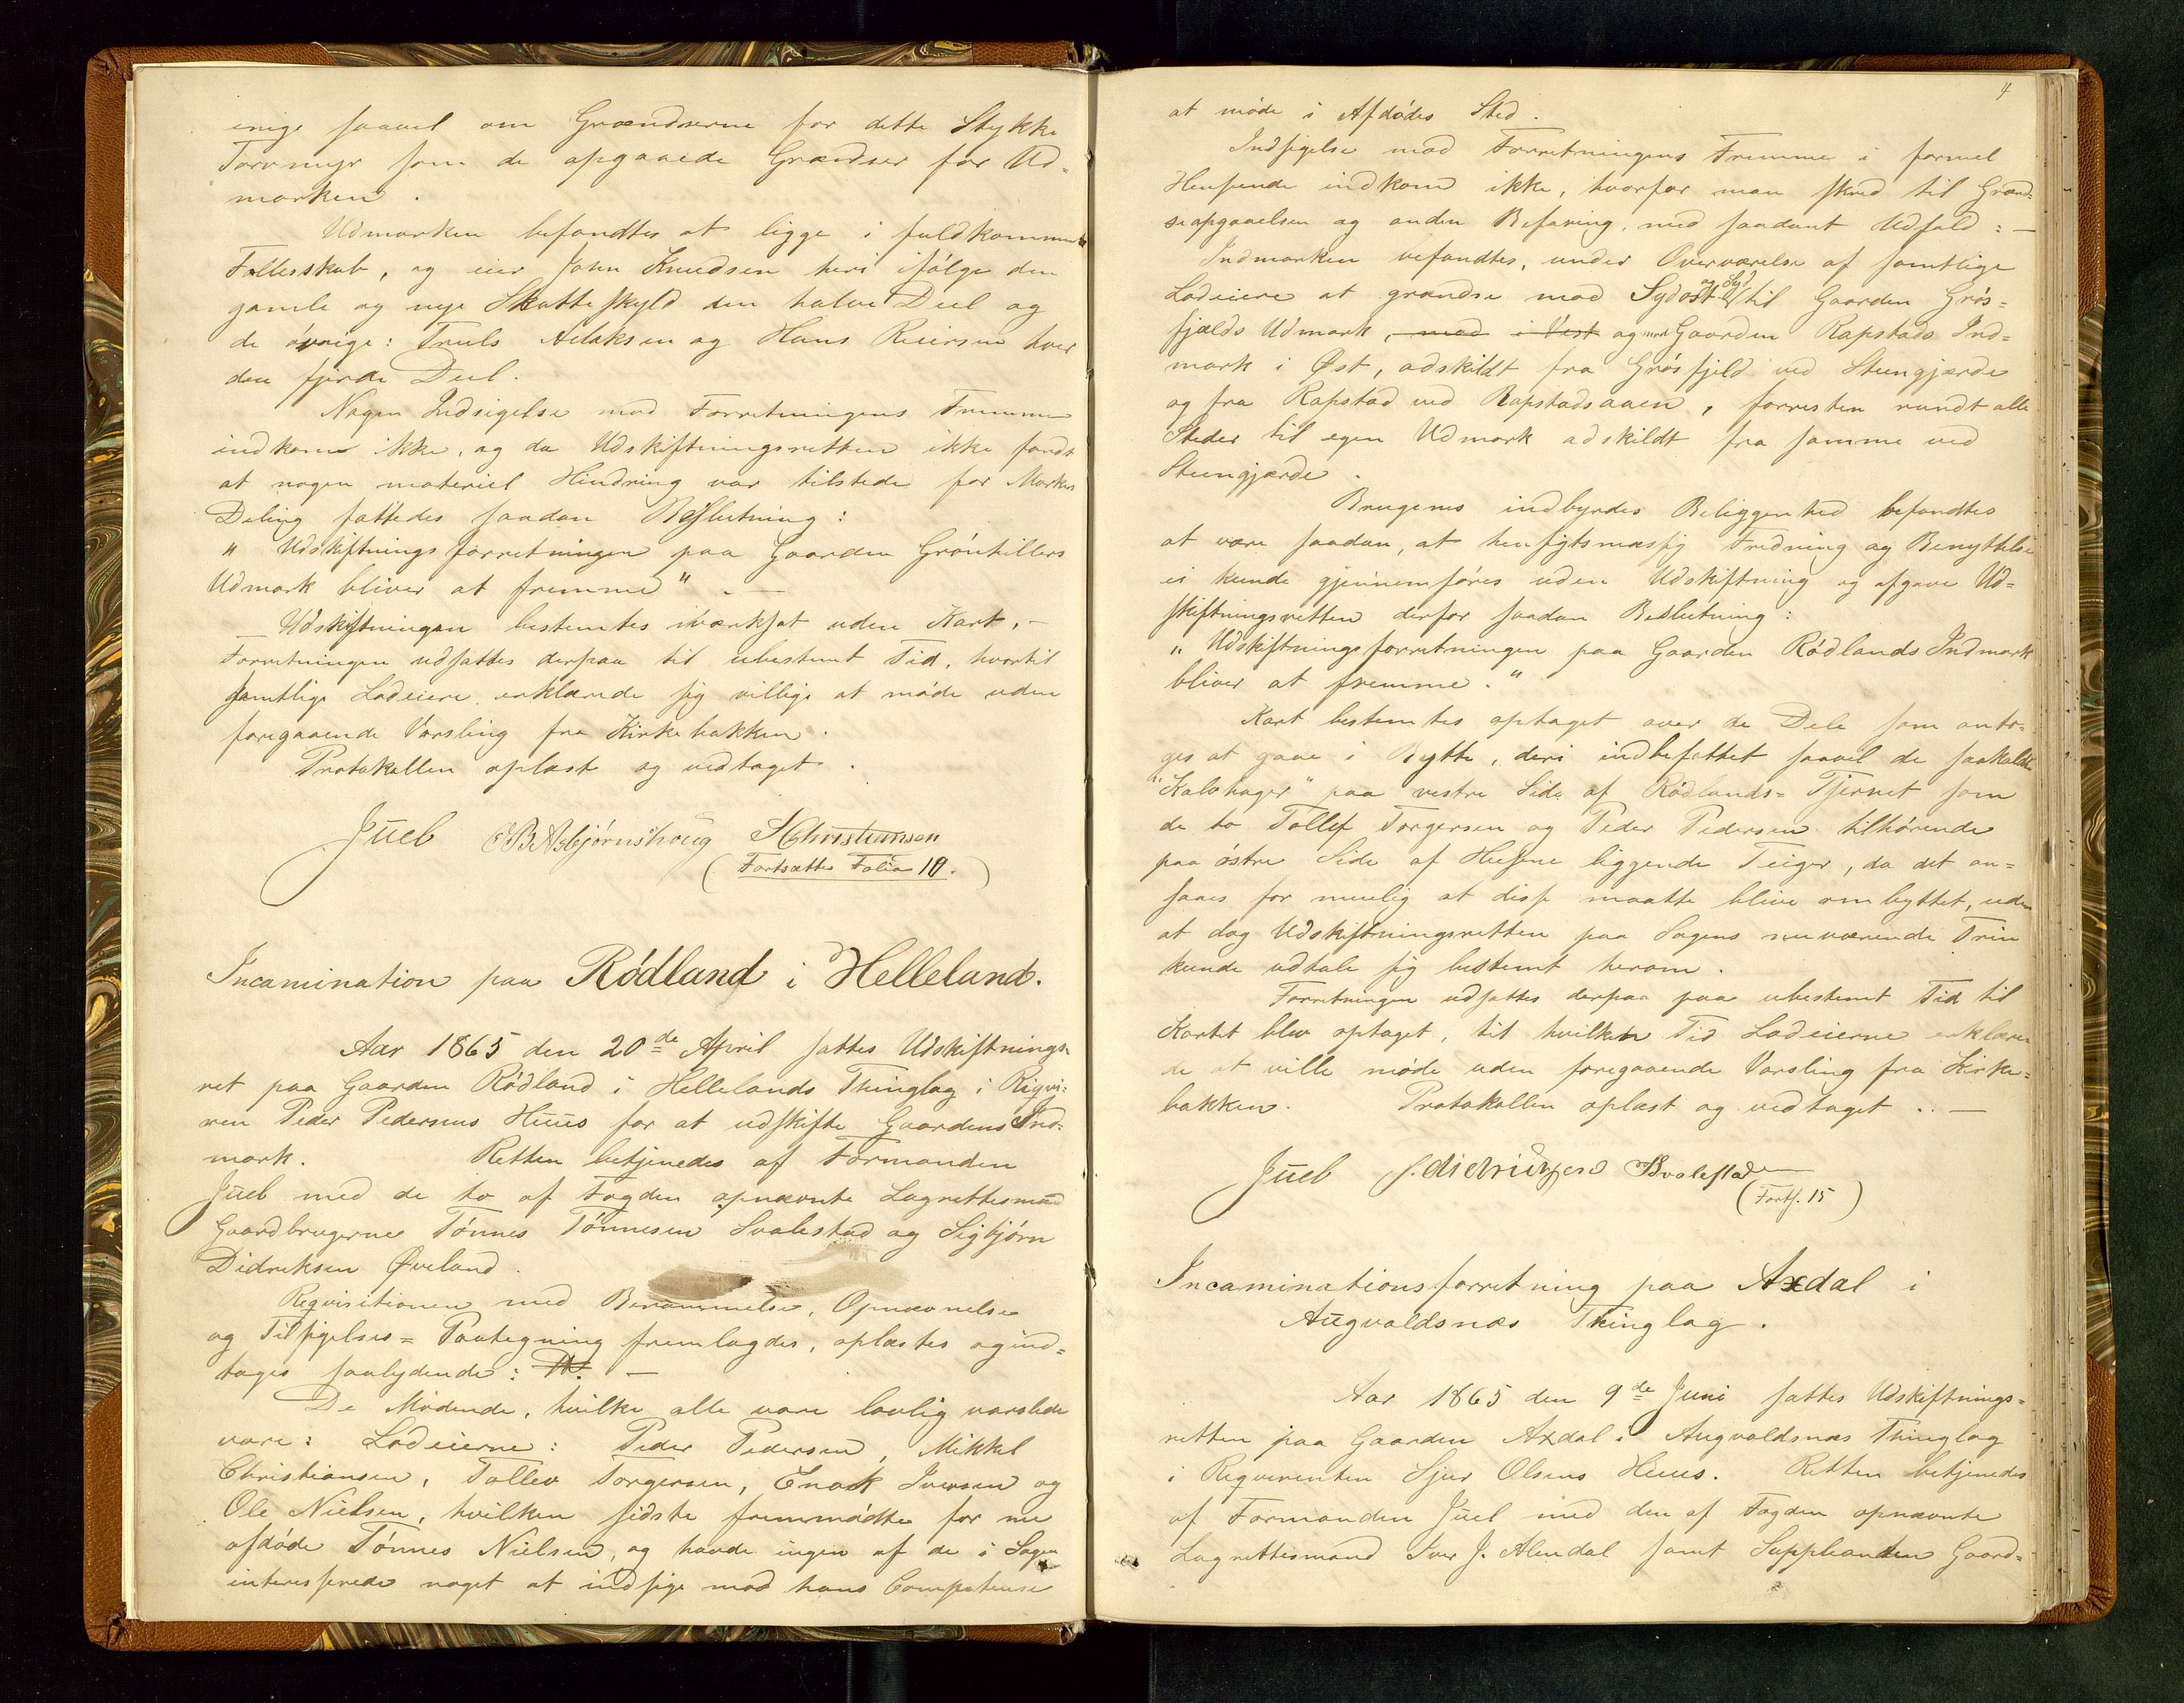 enige saavel om Grændserne for dette Stykke
Torvmyr som de opgaaede Grændser for Ud-
marken.
Udmarken befandtes at ligge i fuldkommen
Fællesskab, og eier John Knudsen heri ifølge den
gamle og nye Skatteskyld den halve Deel og
de øvrige: Truls Aslaksen og Hans Reiersen hver
den fjerde Deel.
Nogen Indsigelse mod Forretningens Fremme
indkom ikke, og da Udskiftningsretten ikke fandt
at nogen materiel Hindring var tilstede for Markens
Deling fattedes saadan Beslutning:
"Udskiftningsforretningen paa Gaarden Grønhillers
Udmark bliver at fremme". —
Udskiftningen bestemtes iværksat uden Kart. —
Forretningen udsattes derpaa til ubestemt Tid, hvortil
samtlige Lodeiere erklærede sig villige at møde uden
foregaaende Varsling fra Kirkebakken.
Protokollen oplæst og vedtaget.
Juel  Asbjørnshoug  S Christiansen
(Fortsættes Folio 10.)
Incamination paa Rødland i Helleland.
Aar 1865 den 20de April sattes Udskiftnings-
ret paa Gaarden Rødland i Hellelands Thinglag i Reqvi-
ren Peder Pedersens Huus for at udskifte Gaardens Ind-
mark. Retten betjenedes af Formanden
Juel med de to af Fogden opnævnte Lagrettesmænd
Gaardbrugerne Tønnes Tønnesen Svalestad og Sigbjørn
Didreksen Øveland.
Reqvisitionen med Berammelse, Opnævnelse
og Tilsigelses-Paategning fremlagdes, oplæstes og ind-
tages saalydende: —
De Mødende, hvilke alle vare lovlig varslede
vare: Lodeierne: Peder Pedersen, Mikkel
Christiansen, Tollev Torgersen, Enok Iversen og
Ole Nielsen, hvilken sidste fremmødte for nu
afdøde Tønnes Nielsen, og havde ingen af de i Sagen
interesserede noget at indsige mod hans Competense
4
at møde i Afdødes Sted.
Indsigelse mod Forretningens Fremme i formel
Henseende indkom ikke, hvorfor man skred til Grænd-
seopgaaelsen og anden Befaring, med saadant Udfald: —
Indmarken befandtes, under Overværelse af samtlige
Lodeiere at grændse mod Sydost og Syd til Gaarden Grøs-
fjelds Udmark, med i Vest og mod Gaarden Rapstads Ind-
mark i Øst, adskildt fra Grøsfjeld ved Steengjærde
og fra Rapstad ved Rapstadsaaen, forresten rundt alle
Steder til egen Udmark adskildt fra samme ved
Steengjærde.
Brugenes indbyrdes Beliggenhed befandtes
at være saadan, at hensigtsmæssig Fredning og Benyttelse
ei kunde gjennemføres uden Udskiftning og afgave Ud-
skiftningsretten derfor saadan Beslutning:
"Udskiftningsforretningen paa Gaarden Rødlands Indmark
bliver at fremme."
Kart bestemtes optaget over de Dele som anto-
ges at gaae i Bytte, deri indbefattet saavel de saakaldte
"Kalvhager" paa vestre Side af Rødlands-Tjernet som
de to Tollef Torgersen og Peder Pedersen tilhørende
paa østre Side af Husene liggende Teiger, da det an-
saaes for muelig at disse maatte blive ombyttet, uden
at dog Udskiftningsretten paa Sagens nuværende Trin
kunde udtale sig bestemt herom.
Forretningen udsattes derpaa paa ubestemt Tid til
Kartet blev optaget, til hvilken Tid Lodeierne erklære-
de at ville møde uden foregaaende Varsling fra Kirke-
bakken. Protokollen oplæst og vedtaget. —
Juel  S. didriksen  Svalestad
(Forts. 15)
Incaminationsforretning paa Axdal i
Augvaldsnæs Thinglag.
Aar 1865 den 9de Juni sattes Udskiftnings-
retten paa Gaarden Axdal i Augvaldsnæs Thinglag
i Reqverenten Sjur Olsens Huus. Retten betjenedes
af Formanden Juel med den af Fogden opnævnte
Lagrettesmand Iver J. Alendal samt Suppleanten Gaard-